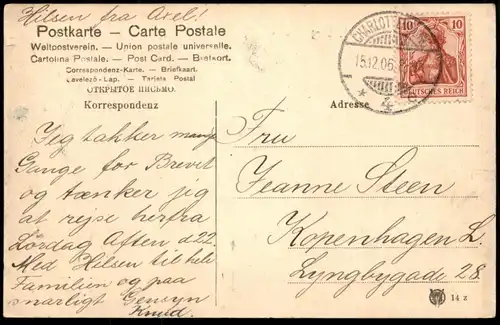 Hilsen fra Axel!
Postkarte – Carte Postale
Weltpostverein. – Union postale universelle.
Cartolina Postale. – Post Card. – Brefkort.
Correspondenz-Karte. – Briefkaart.
Levelező-Lap. – Tarjeta Postal
ОТКРЫТОЕ ПИСЬМО.
Korrespondenz
Adresse
CHARLOTTENBURG
15.12.06.
4
10 10
DEUTSCHES REICH
Jeg takker mange
Gange for Brevet
og tænker jeg
at rejse herfra
Lördag Aften d. 22.
Med Hilsen til hele
Familien og paa
snarligt Gensyn
Knud.
Fru
Jeanne Steen
Kopenhagen L.
Lyngbygade 28.
14 z